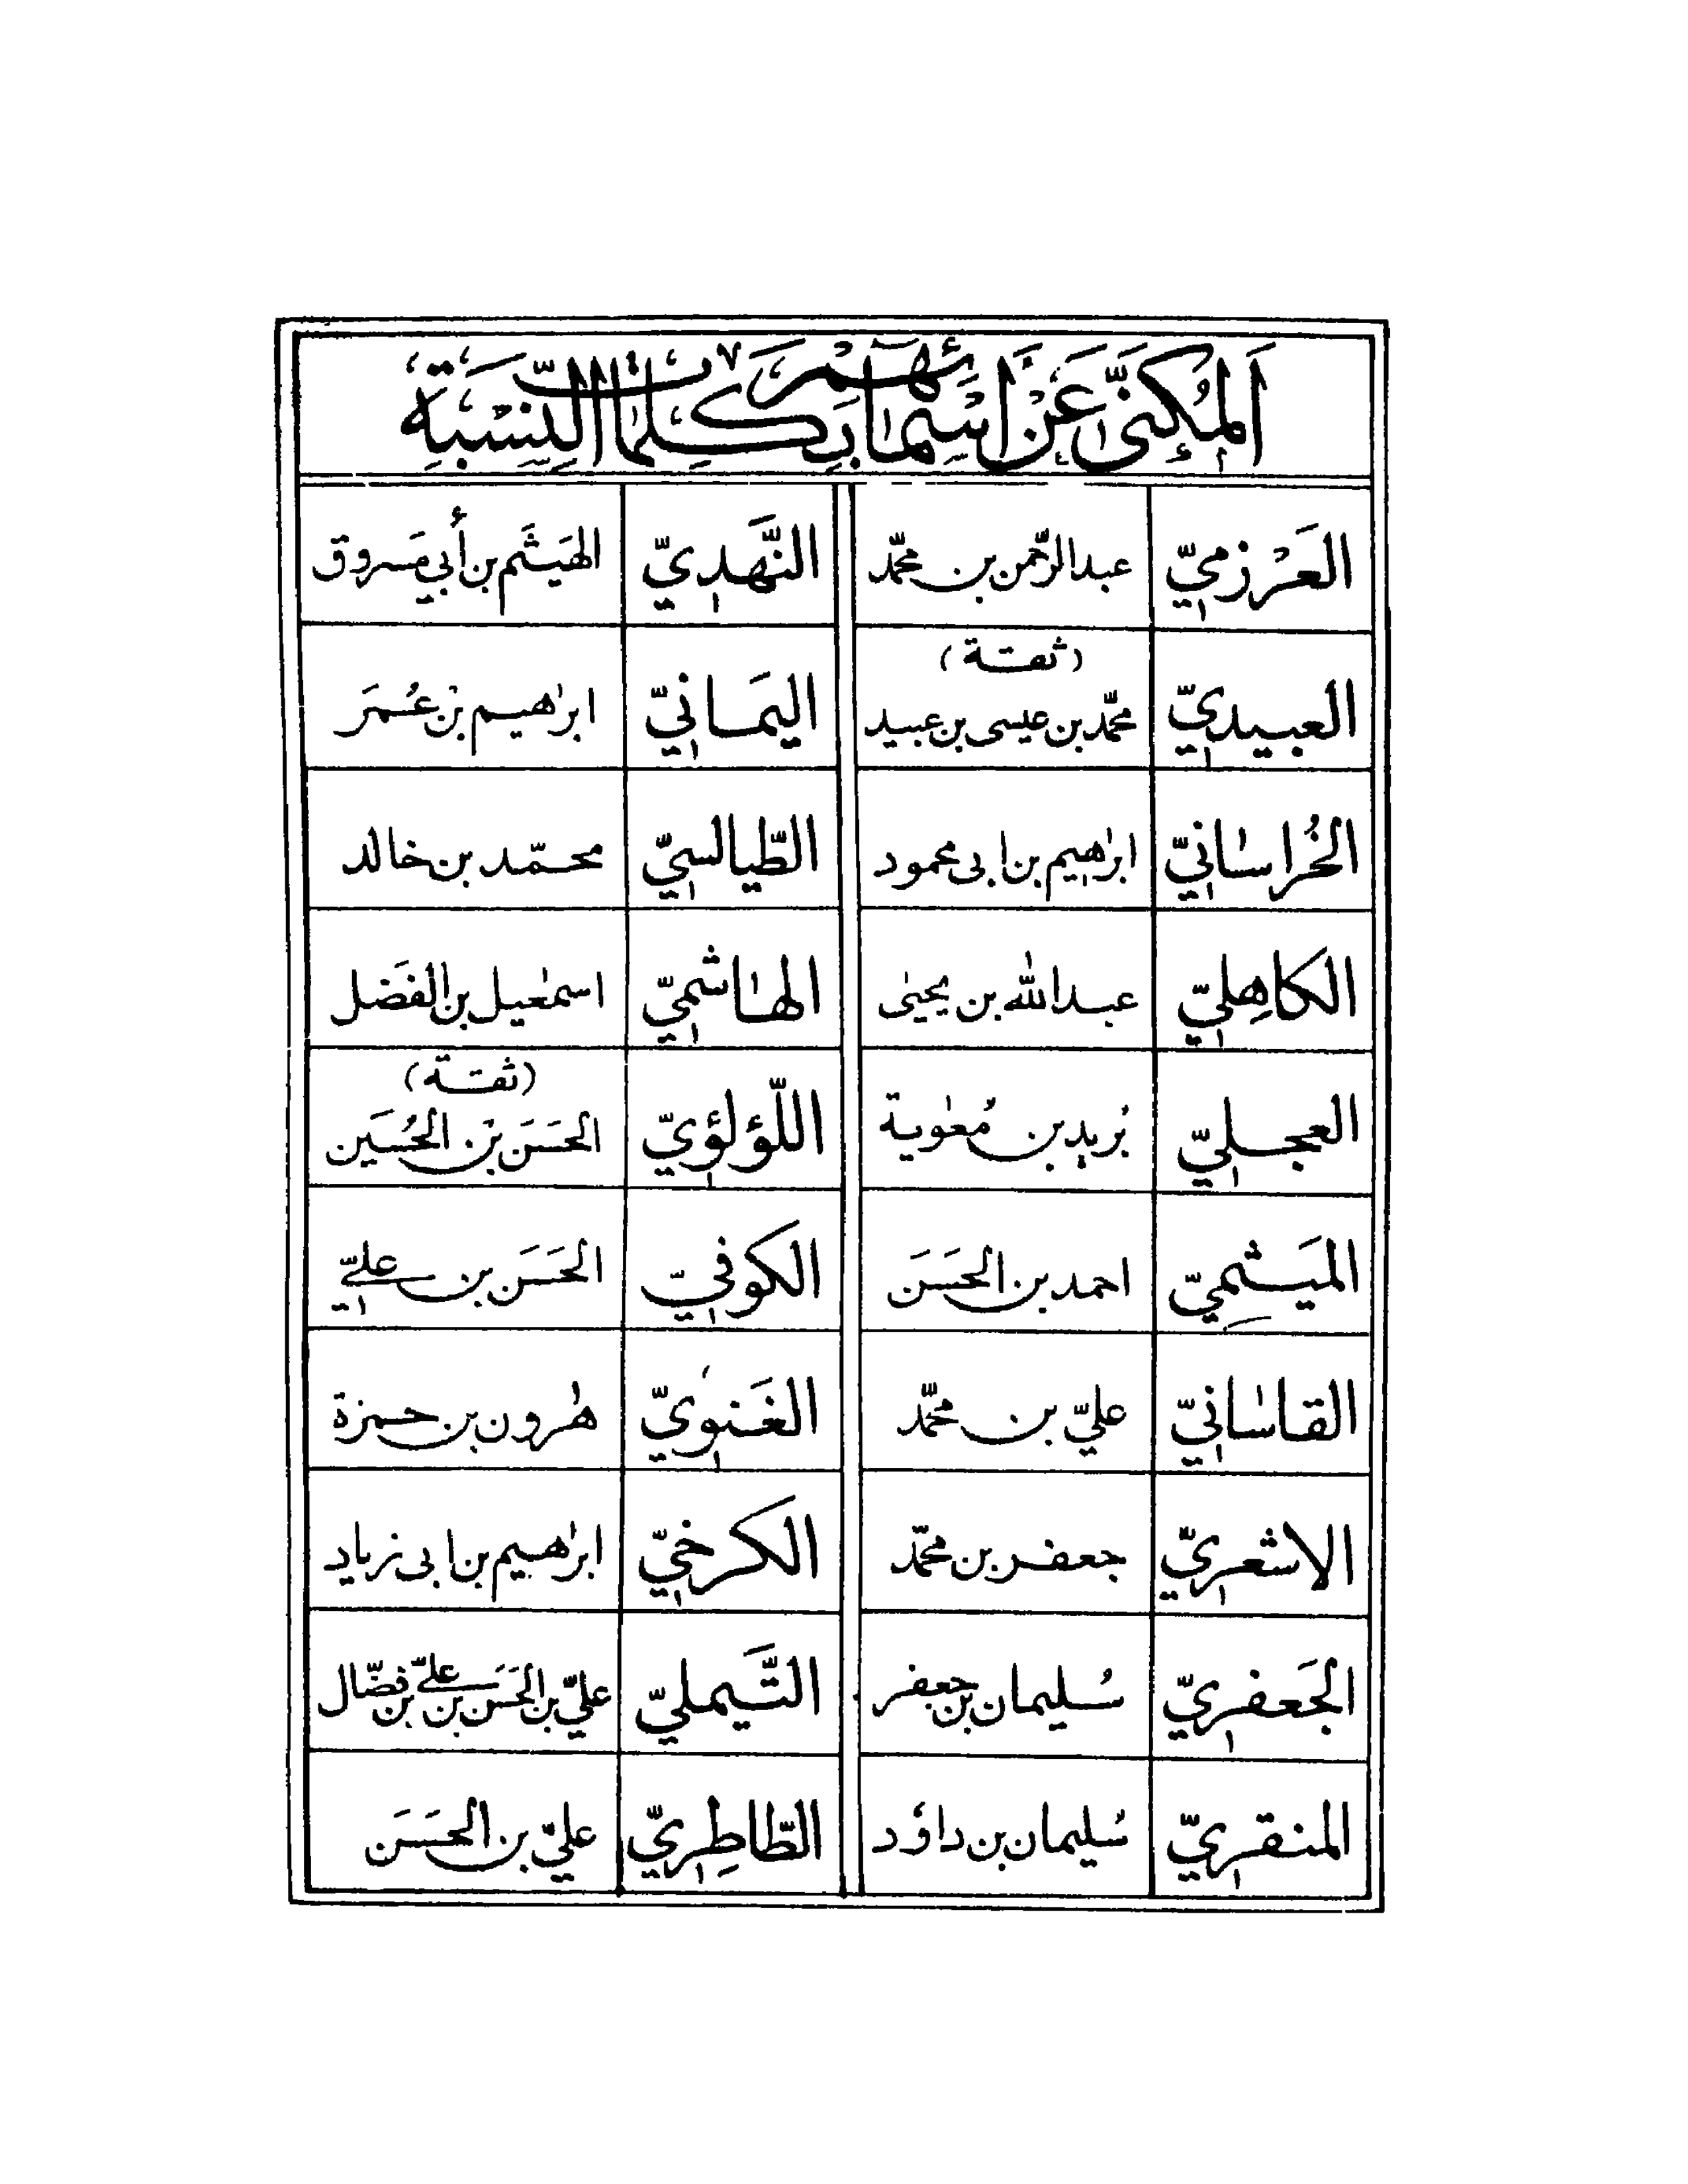 اَلمُكَنّىٰ عَنْ اَسْمآئِهِمْ بِكَلِماتِ النِّسْبَةِ
العَرْزميّ عبدالرّحمن بن محمّد النَّهديّ الهَيثَم بن أبي مَسروق
(ثقـة)
العبيديّ محمّد بن عيسى بن عبيد اليَمانيّ ابرٰهيم بن عُمَر
الخُراسانيّ ابرٰهيم بن ابى محمود الطّيالسيّ محمّد بن خالد
الكاهِليّ عبدالله بن يحيىٰ الهٰاشميّ اسمٰعيل بن الفَضل
(ثقـة)
العجليّ بُريد بن مُعٰوية اللّؤلؤيّ الحَسَن بن الحُسَين
الميَثميّ احمد بن الحَسَن الكوفيّ الحَسَن بن عليّ
القاسٰانيّ عليّ بن محمّد الغَنَويّ هٰرون بن حمزة
الاشعريّ جعفر بن محمّد الكرخيّ ابرٰهيم بن ابى زياد
الجَعفريّ سُليمان بن جعفر التَّيمليّ عليّ بن الحَسَن بن عليّ بن فضّال
المنقريّ سُليمان بن داوُد الطّاطِريّ عليّ بن الحَسَن